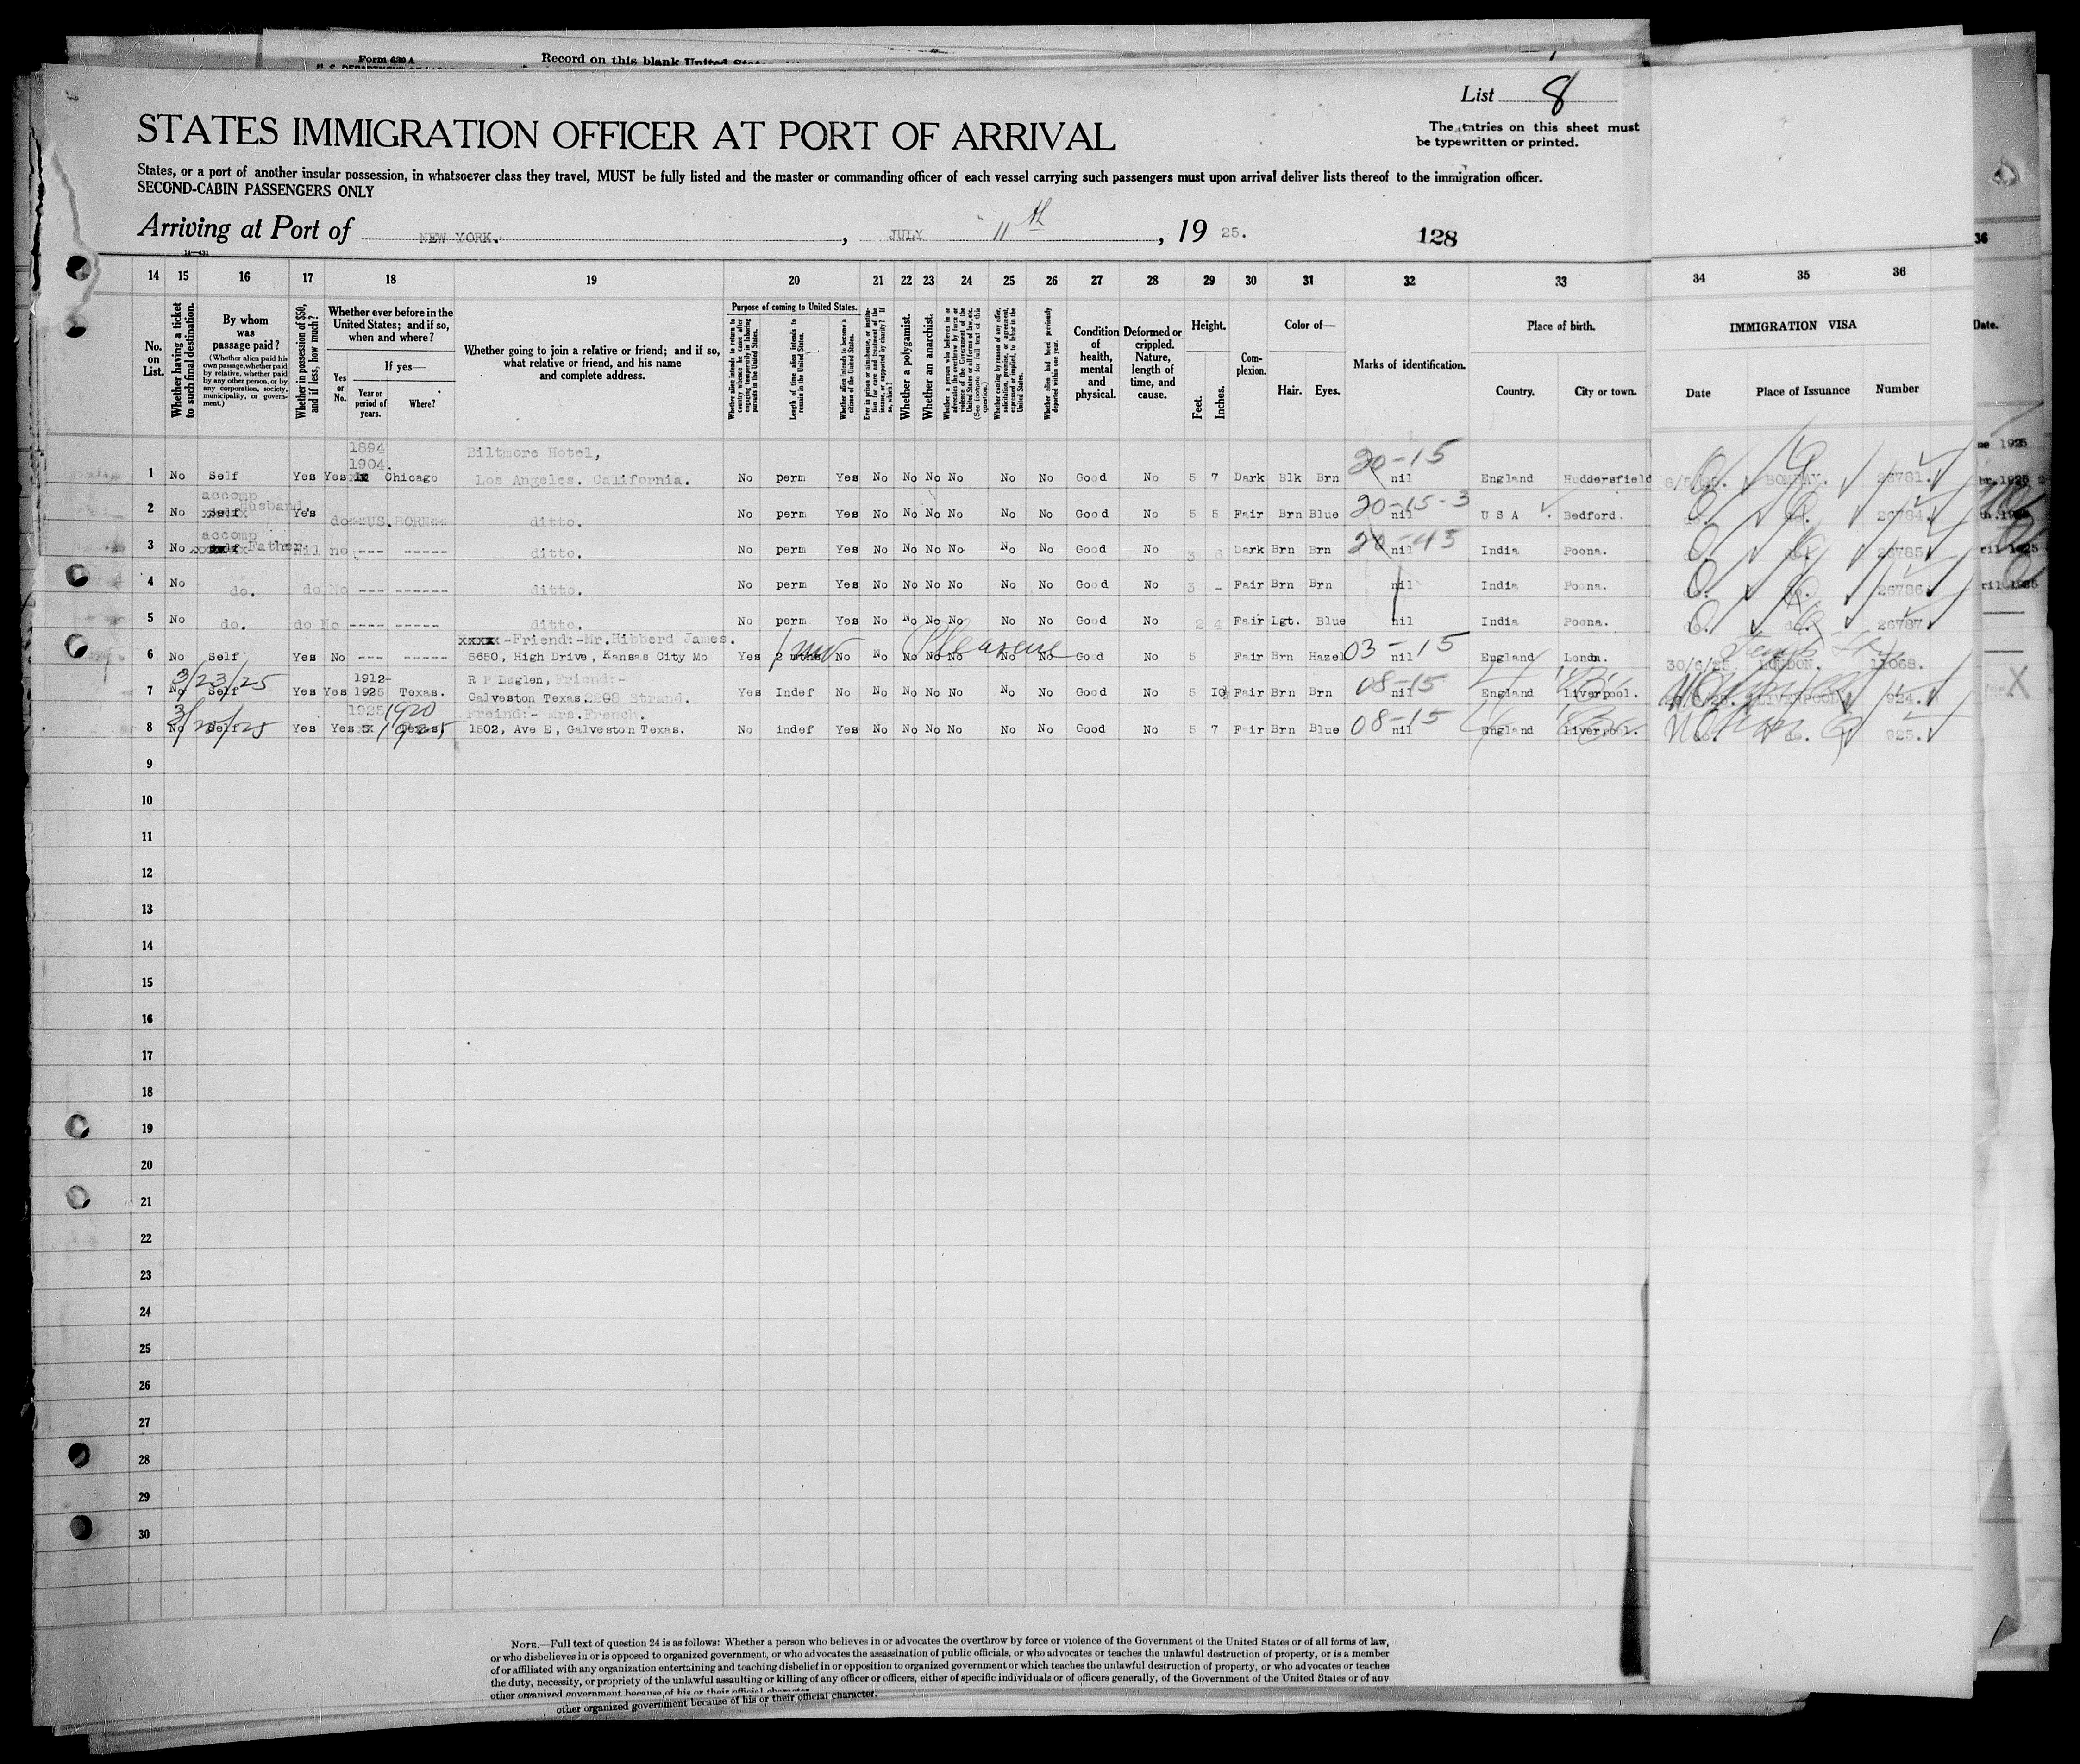 Form 630 A
Record on this blank United States
List 8
STATES IMMIGRATION OFFICER AT PORT OF ARRIVAL
The entries on this sheet must
be typewritten or printed.
States, or a port of another insular possession, in whatsoever class they travel, MUST be fully listed and the master or commanding officer of each vessel carrying such passengers must upon arrival deliver lists thereof to the immigration officer.
SECOND-CABIN PASSENGERS ONLY
Arriving at Port of NEW YORK. , JULY 11th , 19 25. 128
14 15 16 17 18 19 20 21 22 23 24 25 26 27 28 29 30 31 32 33 34 35 36
No. on List.
Whether having a ticket to such final destination.
By whom was passage paid?
(Whether alien paid his own passage, whether paid by relative, whether paid by any other person, or by any corporation, society, municipality, or government.)
Whether in possession of $50, and if less, how much?
Whether ever before in the United States; and if so, when and where?
Yes or No.
If yes—
Year or period of years.
Where?
Whether going to join a relative or friend; and if so, what relative or friend, and his name and complete address.
Purpose of coming to United States.
Whether alien intends to return to country whence he came after engaging temporarily in laboring pursuits in the United States.
Length of time alien intends to remain in the United States.
Whether alien intends to become a citizen of the United States.
Ever in prison or almshouse, or institution for care and treatment of the insane, or supported by charity? If so, which?
Whether a polygamist.
Whether an anarchist.
Whether a person who believes in or advocates the overthrow by force or violence of the Government of the United States or all forms of law, etc. (See footnote for full text of this question.)
Whether coming by reason of any offer, solicitation, promise, or agreement, expressed or implied, to labor in the United States.
Whether alien had been previously deported within one year.
Condition of health, mental and physical.
Deformed or crippled. Nature, length of time, and cause.
Height.
Feet. Inches.
Complexion.
Color of—
Hair. Eyes.
Marks of identification.
Place of birth.
Country. City or town.
IMMIGRATION VISA
Date Place of Issuance Number
1894
1904. Biltmore Hotel, 20-15
1 No Self Yes Yes Chicago Los Angeles. California. No perm Yes No No No No No No Good No 5 7 Dark Blk Brn nil England Huddersfield BOMBAY. 26781.
accomp Husband 20-15-3
2 No Self Yes do US. BORN ditto. No perm Yes No No No No No No Good No 5 5 Fair Brn Blue nil U S A Bedford. do. 26784.
accomp 20-43
3 No Father Nil no --- ----- ditto. No perm Yes No No No No No No Good No 3 6 Dark Brn Brn nil India Poona. 26785
4 No do. do No --- ------ ditto. No perm Yes No No No No No No Good No 3 - Fair Brn Brn nil India Poona. do. 26786
5 No do. do No ---- ------ ditto. No perm Yes No No No No No No Good No 2 4 Fair Lgt. Blue nil India Poona. 26787
xxxxx-Friend:-Mr.Hibberd James. 1 mo Pleasure 03-15
6 No Self Yes No --- ----- 5650, High Drive, Kansas City Mo Yes 2 mths No No No No No No No Good No 5 Fair Brn Hazel nil England Londn. 30/6/25. LONDON. 11068.
3/23/25 1912- Friend:- 08-15
7 No Self Yes Yes 1925 Texas. Galveston Texas. 2208 Strand. Yes Indef No No No No No No No Good No 5 10½ Fair Brn Brn nil England Liverpool. LIVERPOOL 924.
1925 1920 Freind:- Mrs.French. 08-15
8 No Self Yes Yes Texas 1502, Ave E, Galveston Texas. No indef Yes No No No No No No Good No 5 7 Fair Brn Blue nil England Liverpool. do. 925.
9
10
11
12
13
14
15
16
17
18
19
20
21
22
23
24
25
26
27
28
29
30
NOTE.—Full text of question 24 is as follows: Whether a person who believes in or advocates the overthrow by force or violence of the Government of the United States or of all forms of law,
or who disbelieves in or is opposed to organized government, or who advocates the assassination of public officials, or who advocates or teaches the unlawful destruction of property, or is a member
of or affiliated with any organization entertaining and teaching disbelief in or opposition to organized government or which teaches the unlawful destruction of property, or who advocates or teaches
the duty, necessity, or propriety of the unlawful assaulting or killing of any officer or officers, either of specific individuals or of officers generally, of the Government of the United States or of any
other organized government because of his or their official character.
other organized government because of his or their official character.
36
Date.